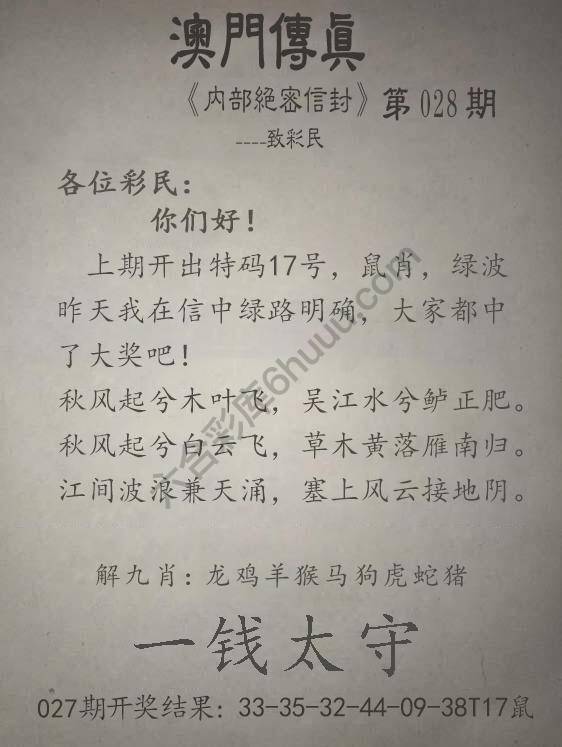 澳門傳真
《内部絕密信封》第028期
----致彩民
各位彩民：
你们好！
上期开出特码17号，鼠肖，绿波
昨天我在信中绿路明确，大家都中
了大奖吧！
秋风起兮木叶飞，吴江水兮鲈正肥。
秋风起兮白云飞，草木黄落雁南归。
江间波浪兼天涌，塞上风云接地阴。
解九肖：龙鸡羊猴马狗虎蛇猪
一钱太守
027期开奖结果：33-35-32-44-09-38T17鼠
六合彩库6huuu.com